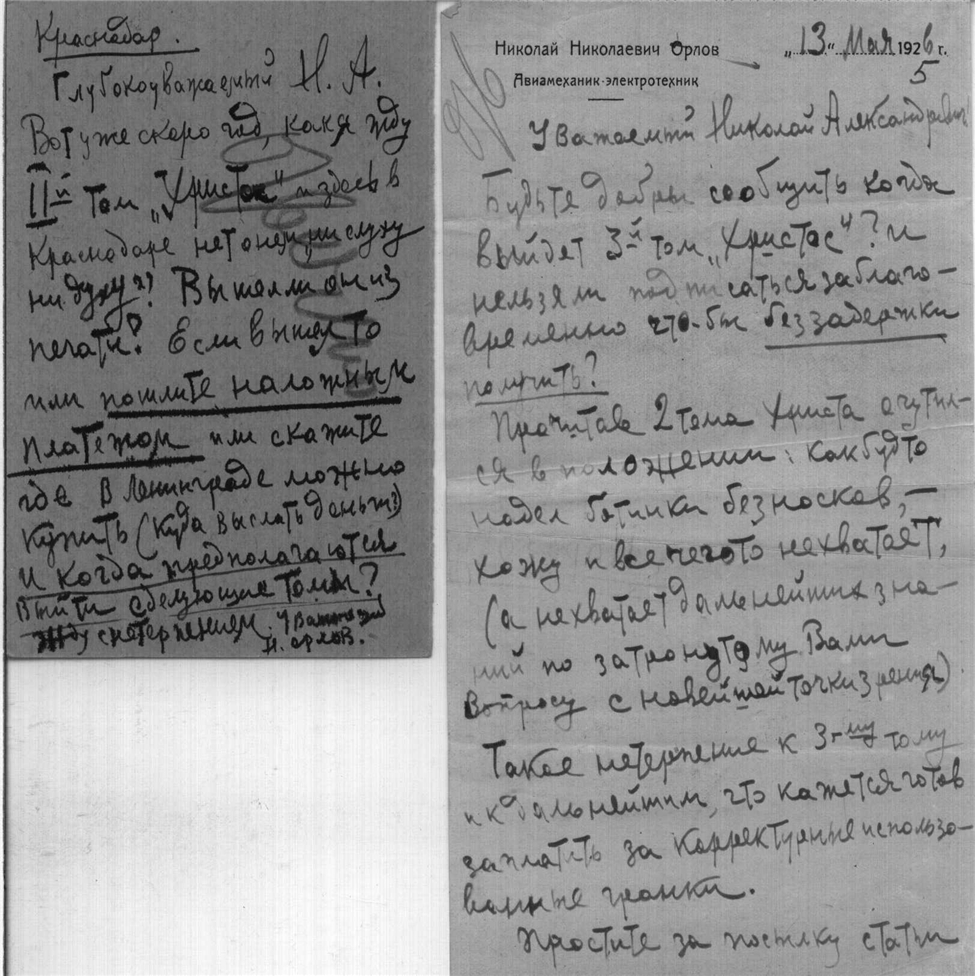 Краснодар.
Глубокоуважаемый Н. А.
Вот уже скоро год, как я жду
IIй том „Христос" и здесь в
Краснодаре нет о нем, ни слуху
ни духу?! Вышел ли он из
печати? Если вышел то
или пошлите наложным
платежом или скажите
где в Ленинграде можно
купить (куда выслать деньги)
и когда предполагаются
выйти следующие томы?
Жду с нетерпением. Уважающий
Н. Орлов.
Николай Николаевич Орлов
Авиамеханик-электротехник
„13" Мая 1926 г.
5
Уважаемый Николай Александрович
Будьте добры сообщить когда
выйдет 3-й том „Христос"? и
нельзя ли подписаться заблаго-
временно что-бы без задержки
получить?
Прочитав 2 тома Христа очутил-
ся в положении: как будто
надел ботинки без носков, —
хожу и все чего то нехватает,
(а нехватает дальнейших зна-
ний по затронутому Вами
вопросу с новейшей точки зрения).
Такое нетерпение к 3-му тому
и к дальнейшим, что кажется готов
заплатить за корректурные использо-
ванные гранки.
Простите за посылку статьи